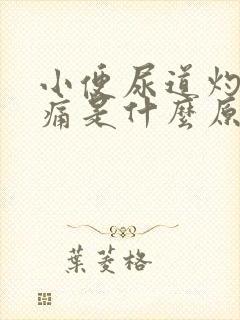 小便尿道灼
痛是什麼原
葉菱格